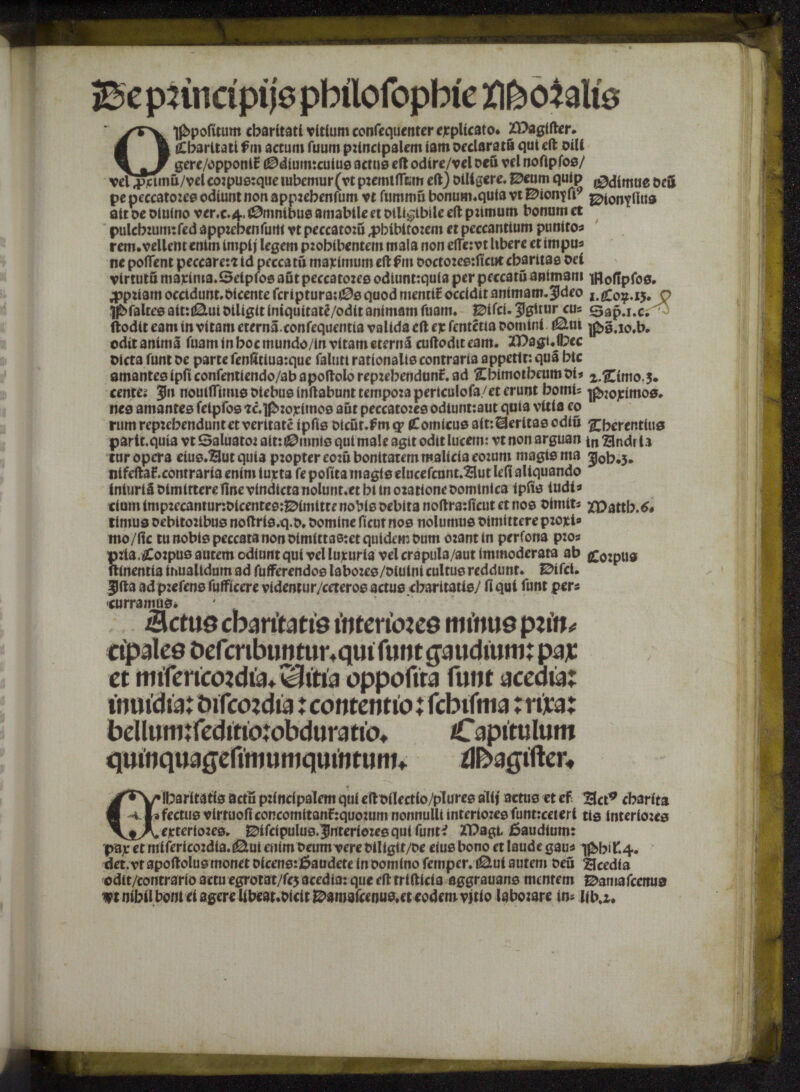 De principijs philosophie Moralis
OPpositum charitati vitium consequenter explicato. Magister.
Charitati ẜm actum suum principalem iam declaratū qui est dili
gere/opponit᷑ Odium:cuius actus est odire/vel deū vel nosipsos/
vel ꝓximū/vel corpus:que iubemur(vt premissum est) diligere. Deum quip
pe peccatores odiunt non apprehensum vt summū bonum.quia vt Dionysiꝰ
ait de diuino ver.c.4.Omnibus amabile et diligibile est primum bonum et
pulchrum:sed apprehensum vt peccatorū ꝓhibitorem et peccantium punito⸗
rem.vellent enim impij legem prohibentem mala non esse:vt libere et impu⸗
ne possent peccare:⁊ id peccatū maximum est ẜm doctores:sicut charitas dei
virtutū maxima.Seipsos aūt peccatores odiunt:quia per peccatū animam
ꝓpriam occidunt.dicente scriptura:Os quod mentit᷑ occidit animam.Ideo
Psaltes ait:Qui diligit iniquitatē/odit animam suam. Disci. Igitur cu⸗
stodit eam in vitam eternā.consequentia valida est ex sentētia domini. Qui
odit animā suam in hoc mundo/in vitam eternā custodit eam. Magi.Hec
dicta sunt de parte sensitiua:que saluti rationalis contraria appetit: quā hic
amantes ipsi consentiendo/ab apostolo reprehendunt᷑. ad Thimotheum di⸗
cente: In nouissimis diebus instabunt tempora periculosa/et erunt homi⸗
nes amantes seipsos ⁊c.Proximos aūt peccatores odiunt:aut quia vitia eo
rum reprehendunt et veritatē ipsis dicūt.ẜm ꝙ Comicus ait:Veritas odiū
parit.quia vt Saluator ait:Omnis qui male agit odit lucem: vt non arguan
tur opera eius.Aut quia propter eorū bonitatem malicia eorum magis ma
nifestat᷑.contraria enim iuxta se posita magis elucescunt.Aut lesi aliquando
iniuriā dimittere sine vindicta nolunt.et hi in oratione dominica ipsis iudi⸗
cium imprecantur:dicentes:Dimitte nobis debita nostra:sicut et nos dimit⸗
timus debitoribus nostris.q.d. domine sicut nos nolumus dimittere proxi⸗
mo/sic tu nobis peccata non dimittas:et quidem dum orant in persona pro⸗
pria.Corpus autem odiunt qui vel luxuria vel crapula/aut immoderata ab
stinentia inualidum ad sufferendos labores/diuini cultus reddunt. Disci.
Ista ad presens sufficere videntur/ceteros actus charitatis/ si qui sunt per⸗
curramus.
Odimus deū
Dionysius
Nosipsos.
1.Coꝝ.15.
Sap.1.c.
Ps̄.10.b.
2.Timo.3.
Proximos.
Therentius
in Andria
Job.3.
Matth.6.
Corpus
Actus charitatis interiores minus prin⸗
cipales describuntur.qui sunt gaudium: pax
et misericordia. Vitia opposita sunt acedia:
inuidia: discordia: contentio: schisma: rixa:
bellum:seditio:obduratio. Capitulum
quinquagesimumquintum. Magister.
CHaritatis actū principalem qui est dilectio/plures alij actus et ef
fectus virtuosi concomitant᷑:quorum nonnulli interiores sunt:ceteri
exteriores. Discipulus.Interiores qui sunt? Magi. Gaudium:
pax et misericordia.Qui enim deum vere diligit/de eius bono et laude gau⸗
det.vt apostolus monet dicens:Gaudete in domino semper. Qui autem deū
odit/contrario actu egrotat/scꝫ acedia: que est tristicia aggrauans mentem
vt nihil boni ei agere libeat.dicit Damascenus.et eodem vitio laborare in⸗
Actꝰ charita
tis interiores
Phil.4.
Acedia
Damascenus
lib.2.